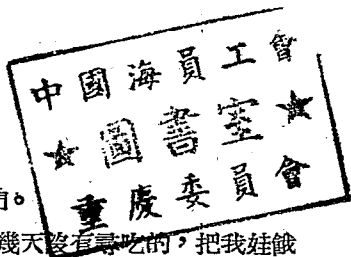 中國海員工會
★圖書室★
重慶委員會
幾天沒有尋吃的，把我娃餓